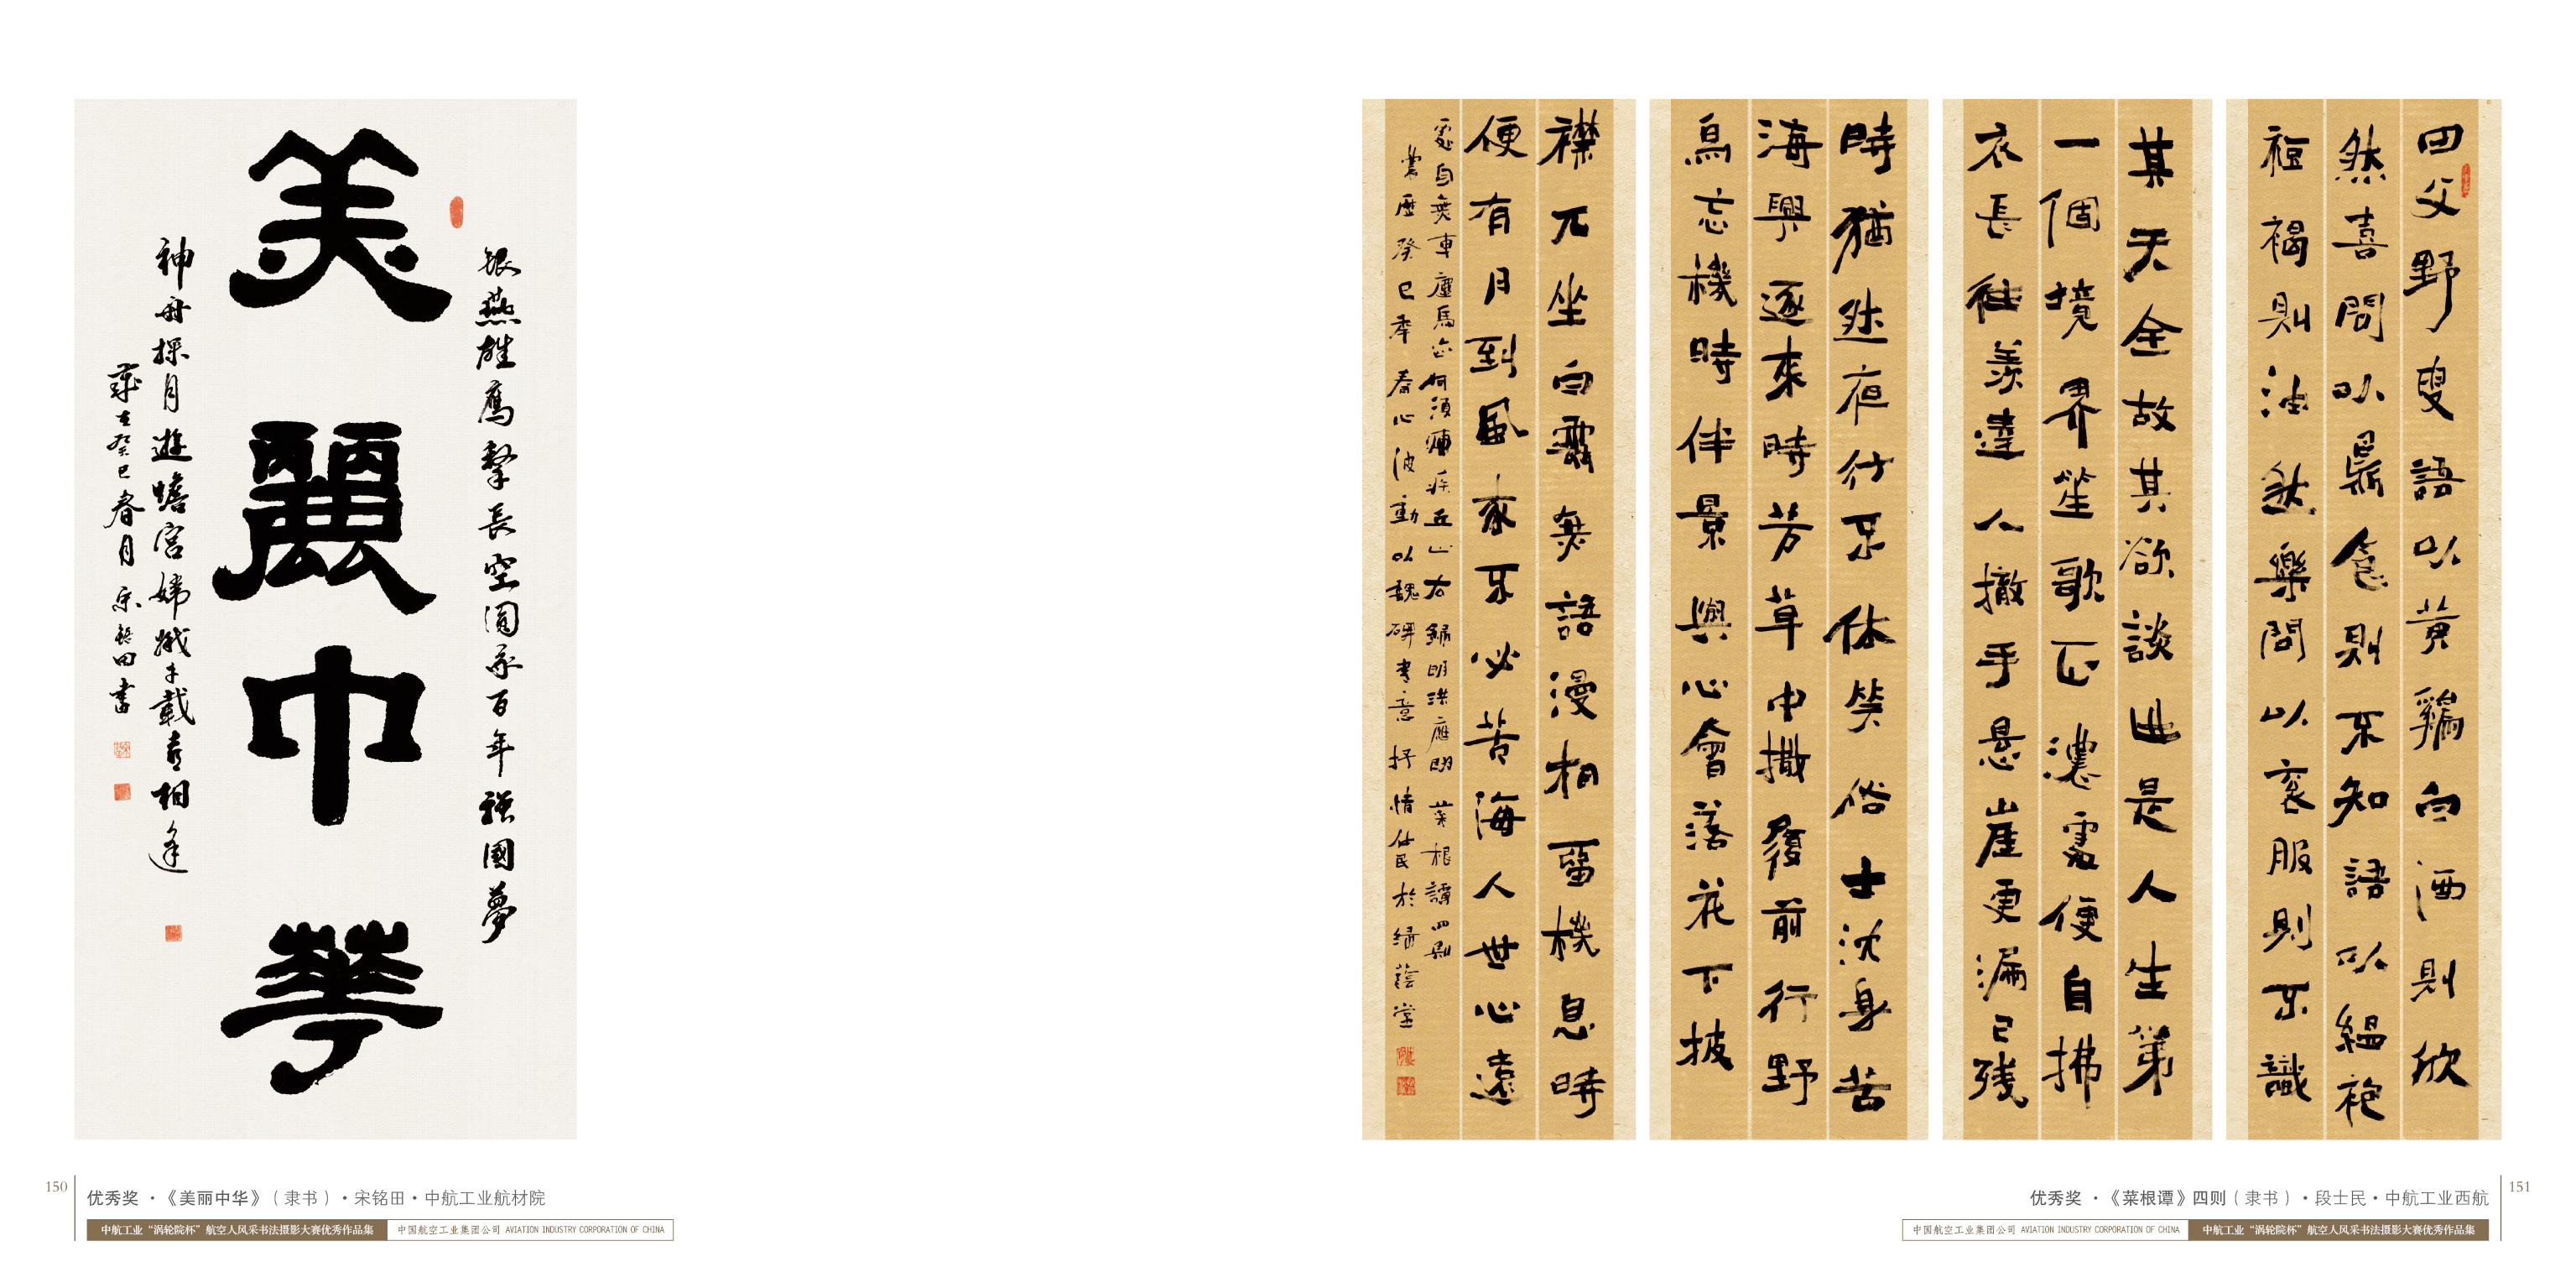 銀燕雄鷹擊長空圓我百年強國夢
美麗中華
神舟探月遊蟾宮嫦娥千載喜相逢
歲在癸巳春月 宋銘田書
田父野叟語以黃鷄白酒則欣
然喜問以鼎食則不知語以縕袍
裋褐則油然樂問以袞服則不識
其天全故其欲談此是人生第
一個境界笙歌正濃處便自拂
衣長往羨達人撒手悬崖更漏已残
時猶然夜行不休笑俗士沈身苦
海興逐來時芳草中撒履前行野
鳥忘機時伴景與心會落花下披
襟兀坐白雲無語漫相留機息時
便有月到風來不必苦海人世心遠
處自無車塵馬迹何須痼疾丘山右錄明洪應明菜根譚四則
農曆癸巳年春心波動以魏碑書意抒情仕民於綠蔭堂
150
优秀奖 ·《美丽中华》（隶书）·宋铭田·中航工业航材院
中航工业“涡轮院杯”航空人风采书法摄影大赛优秀作品集 中国航空工业集团公司 AVIATION INDUSTRY CORPORATION OF CHINA
151
优秀奖 ·《菜根谭》四则（隶书）·段士民·中航工业西航
中国航空工业集团公司 AVIATION INDUSTRY CORPORATION OF CHINA 中航工业“涡轮院杯”航空人风采书法摄影大赛优秀作品集